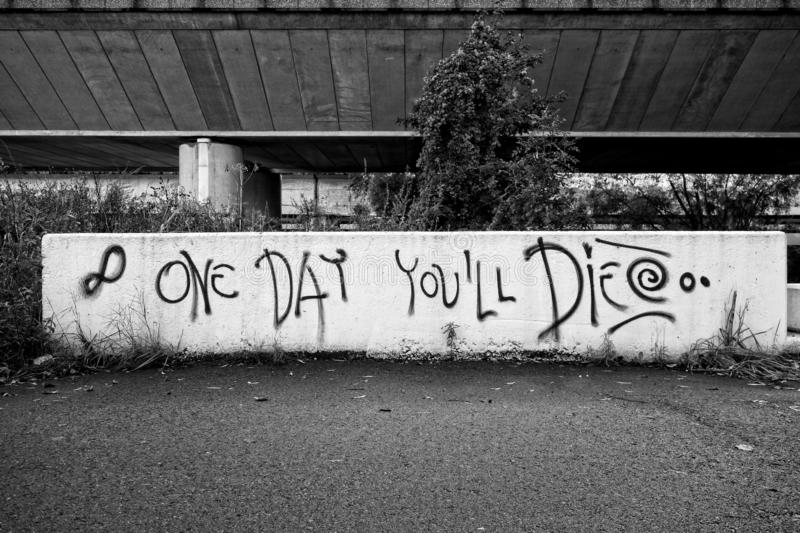 ∞ ONE DAY YOU'LL DIE@..